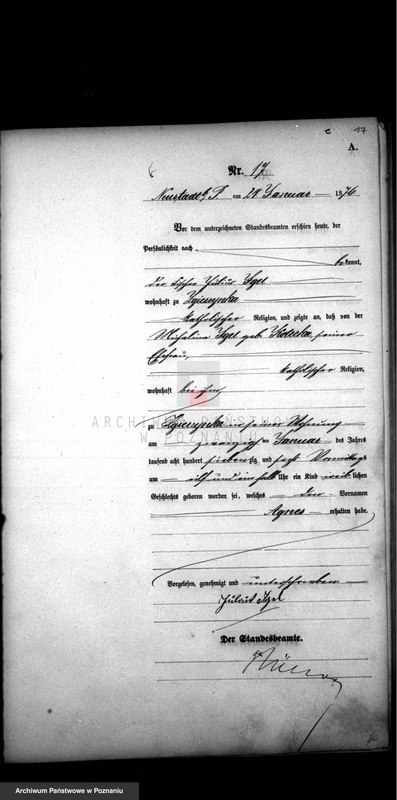 c 17
A.
Nr. 17
Neustadt b/P. am 28 Januar 1876
Vor dem unterzeichneten Standesbeamten erschien heute, der
Persönlichkeit nach
bekannt,
der Fischer Julius Igel
wohnhaft zu Zgierzynka
katholischer Religion, und zeigte an, daß von der
Michalina Igel geb. seiner
Ehefrau,
katholischer Religion,
wohnhaft bei ihm
ARCHIWUM PAŃSTWOWE
W POZNANIU
zu Zgierzynka in seiner Wohnung
am Januar des Jahrs
tausend acht hundert siebenzig und sechs Vormittags
um Uhr ein Kind weiblichen
Geschlechts geboren worden sei, welches den Vornamen
Agnes erhalten habe.
Vorgelesen, genehmigt und unterschrieben
Der Standesbeamte.
Archiwum Państwowe w Poznaniu